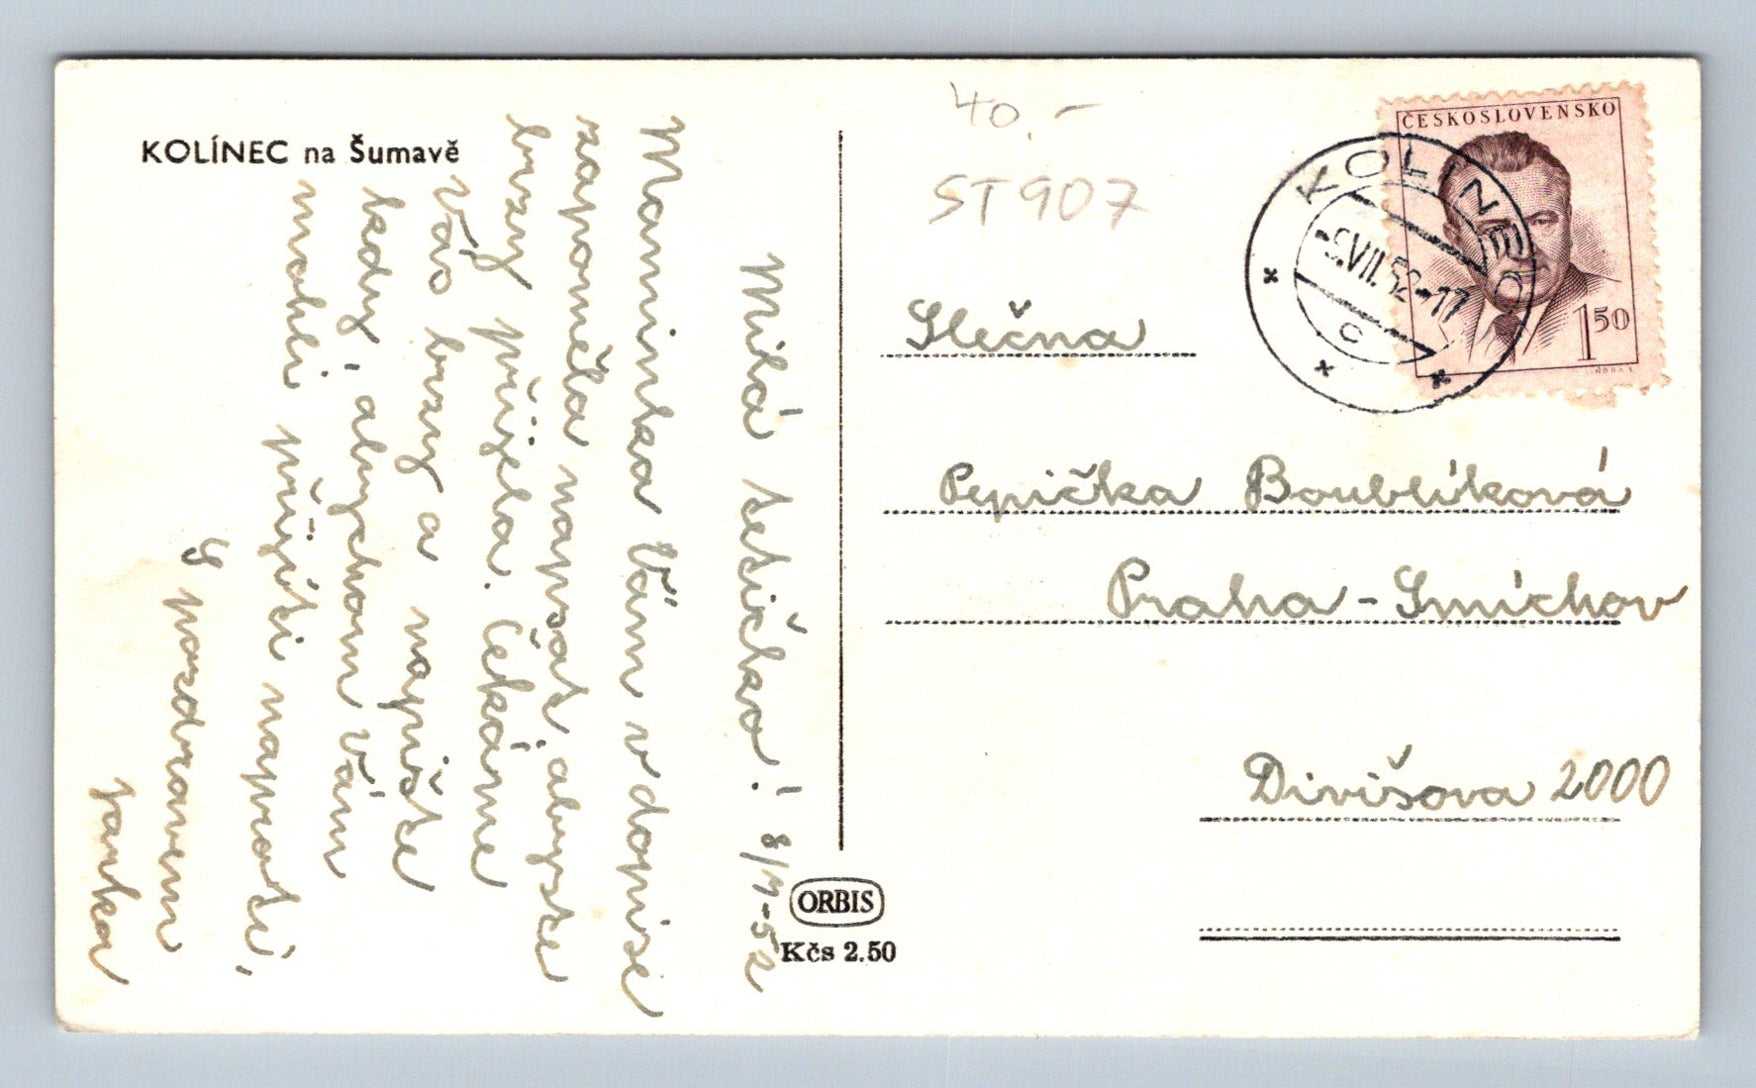 KOLÍNEC na Šumavě
Milá tetičko! 8/7-52
Maminka Vám v dopise
zapoměla napsat, abyste
brzy přijela. Čekáme
Vás brzy a napište
kdy, abychom Vám
mohli přijíti naproti,
S pozdravem
Jarka
40.-
ST 907
ČESKOSLOVENSKO
1 50
KOLINEC
-9.VII.52-17
C
Slečna
Pepička Boublíková
Praha-Smíchov
Divišova 2000
ORBIS
Kčs 2.50